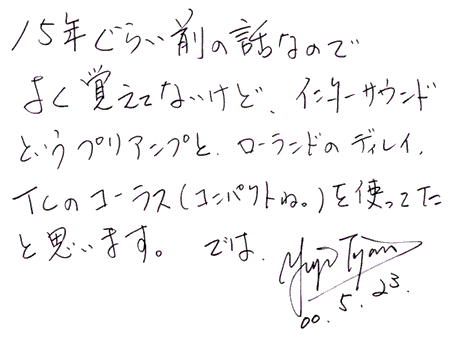 15年ぐらい前の話なので
よく覚えてないけど、インナーサウンド
というプリアンプと、ローランドのディレイ、
TCのコーラス(コンパクトね。)を使ってた
と思います。 では、
00. 5. 23.